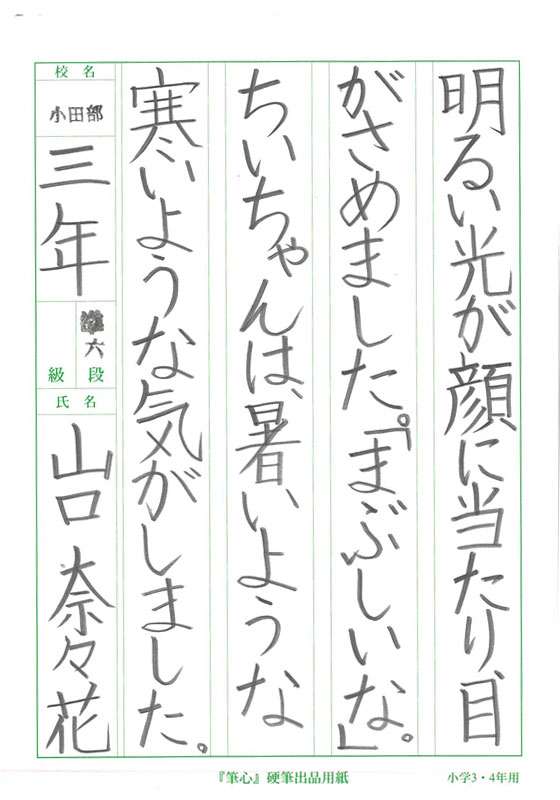 明るい光が顔に当たり、目
がさめました。「まぶしいな。」
ちいちゃんは、暑いような
寒いような気がしました。
校名
小田部
三年
準六
級 段
氏名
山口 奈々花
『筆心』硬筆出品用紙
小学3・4年用